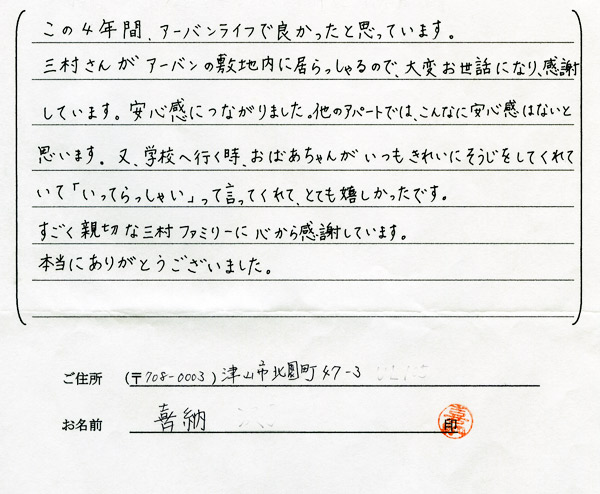 この4年間、アーバンライフで良かったと思っています。
三村さんがアーバンの敷地内に居らっしゃるので、大変お世話になり、感謝
しています。安心感につながりました。他のアパートでは、こんなに安心感はないと
思います。又、学校へ行く時、おばあちゃんがいつもきれいにそうじをしてくれて
いて「いってらっしゃい」って言ってくれて、とても嬉しかったです。
すごく親切な三村ファミリーに心から感謝しています。
本当にありがとうございました。
ご住所 (〒708-0003) 津山市北園町47-3
お名前 喜納 印